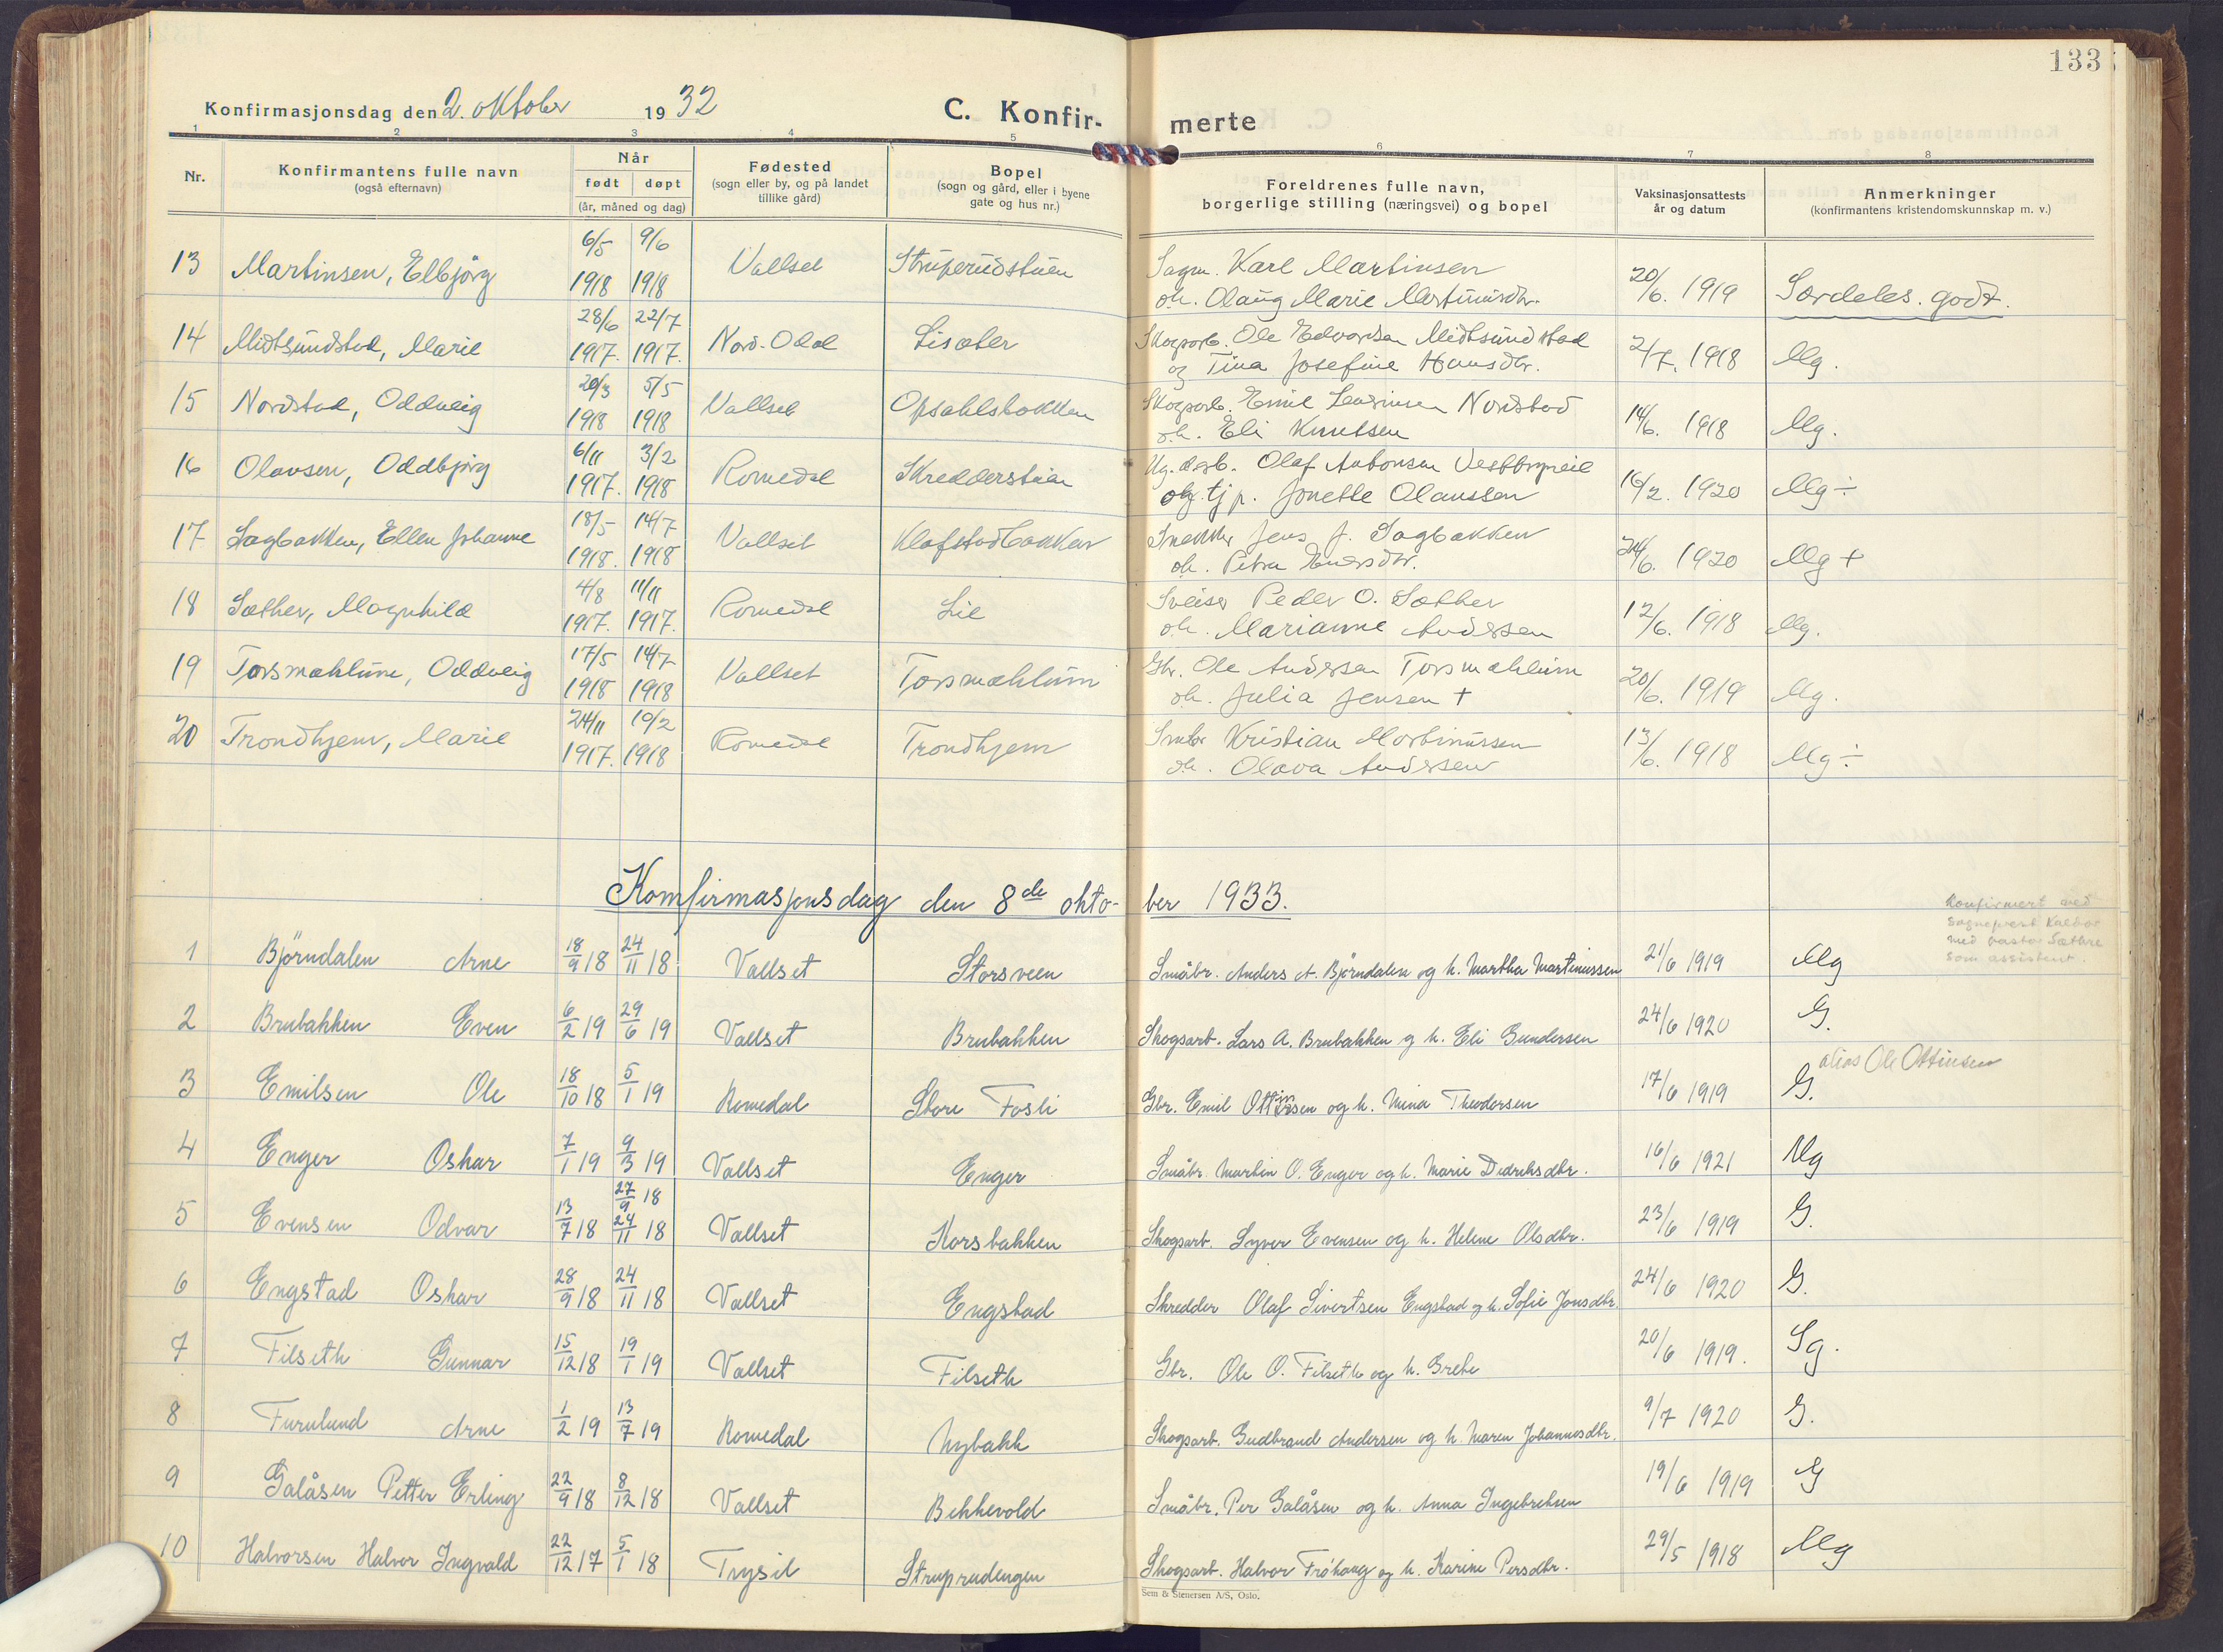 133
Konfirmasjonsdag den 2. oktober 1932
C. Konfir-merte
1 2 3 4 5 6 7 8
Nr.
Konfirmantens fulle navn
(også efternavn)
Når
født døpt
(år, måned og dag)
Fødested
(sogn eller by, og på landet
tillike gård)
Bopel
(sogn og gård, eller i byene
gate og hus nr.)
Foreldrenes fulle navn,
borgerlige stilling (næringsvei) og bopel
Vaksinasjonsattests
år og datum
Anmerkninger
(konfirmantens kristendomskunnskap m. v.)
13 Martinsen, Elbjörg 6/5 1918 9/6 1918 Vallset Struperudstuen Sagm. Karl Martinsen
oh. Olaug Marie Martinusdtr. 20/6. 1919 Særdeles. godt.
14 Midtsundstad, Marie 28/6 1917. 22/7 1917. Nord-Odal Lisæter Skogsarb. Ole Edvardsen Midtsundstad
og Tina Josefine Hansdtr. 2/7. 1918 Mg.
15 Nordstad, Oddveig 20/3 1918 5/5 1918 Vallset Opsahlsbakken Skogsarb. Emil Nordstad
oh. Eli Knutsen 14/6. 1918 Mg.
16 Olavsen, Oddbjörg 6/11 1917. 3/2 1918 Romedal Skredderstuen Olaf Antonsen
og tjp. Jonette Olaussen 16/2. 1920 Mg ÷
17 Sagbakken, Ellen Johanne 18/5 1918. 14/7 1918 Vallset Klafstadbakken Snekker Jens J. Sagbakken
oh. Petra 24/6. 1920 Mg +
18 Sæther, Magnhild 4/8 1917. 11/11 1917. Romedal Lie Sveiser Peder O. Sæther
oh. Marianne Andersen 12/6. 1918 Mg.
19 Torsmæhlum, Oddveig 17/5 1918 14/7 1918 Vallset Torsmæhlum Gbr. Ole Andersen Torsmæhlum
oh. Julia Jensen + 20/6. 1919 Mg.
20 Trondhjem, Marie 24/11 1917. 10/2 1918 Romedal Trondhjem Småbr Kristian Martinussen
oh. Olava Andersen 13/6. 1918 Mg ÷
Komfirmasjonsdag den 8de okto-ber 1933.
Konfirmert ved
Sogneprest
med pastor Sæthre
som assistent.
1 Björndalen Arne 18/9 18 24/11 18 Vallset Storsveen Småbr. Anders A. Björndalen og h. Martha Martinussen 21/6 1919 Mg
2 Brubakken Even 6/2 19 29/6 19 Vallset Brubakken Skogsarb. Lars A. Brubakken og h. Eli Gundersen 24/6 1920 G.
alias Ole Ottinsen
3 Emilsen Ole 18/10 18 5/1 19 Romedal Store Fosli Gbr. Emil Ottinsen og h. Mina Theodorsen 17/6 1919 G.
4 Enger Oskar 7/1 19 9/3 19 Vallset Enger Småbr. Martin O. Enger og h. Marie Didriksdtr. 16/6 1921 Mg
5 Evensen Odvar 13/7 18 27/9 18 24/11 18 Vallset Korsbakken Skogsarb. Syver Evensen og h. Helene Olsdtr. 23/6 1919 G.
6 Engstad Oskar 28/9 18 24/11 18 Vallset Engstad Skredder Olaf Sivertsen Engstad og h. Sofie Jonsdtr. 24/6 1920 G.
7 Filseth Gunnar 15/12 18 19/1 19 Vallset Filseth Gbr. Ole O. Filseth og h. Grete 20/6 1919. Sg.
8 Furulund Arne 1/2 19 13/7 19 Romedal Nybakk Skogsarb. Gudbrand Andersen og h. Maren Johannesdtr. 9/7 1920 G.
9 Galåsen Petter Erling 22/9 18 8/12 18 Vallset Bekkevold Småbr. Per Galåsen og h. Anna Ingebretsen 19/6 1919 G
10 Halvorsen Halvor Ingvald 22/12 17 5/1 18 Trysil Struprudengen Skogsarb. Halvor Fröhaug og h. Karine Persdtr. 29/5 1918 Mg
Sem & Stenersen A/S, Oslo.